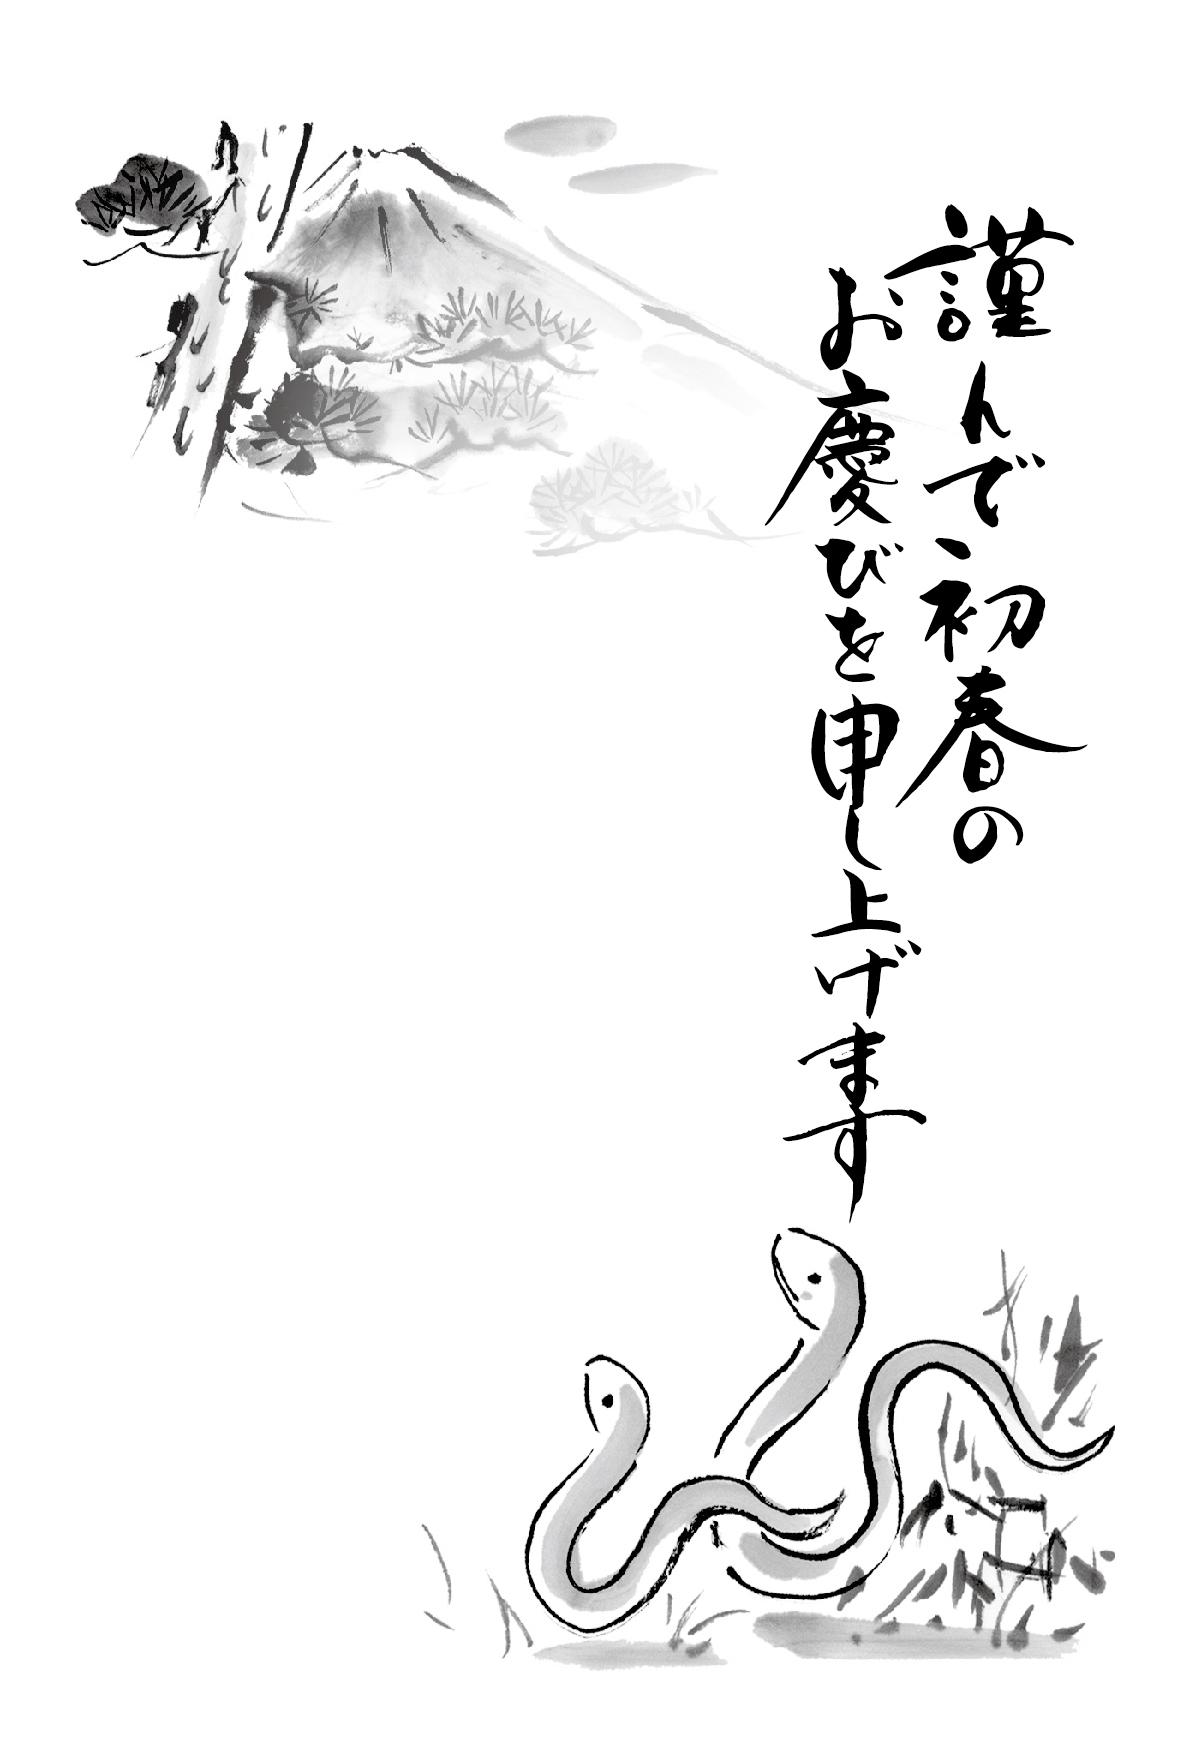 謹んで初春の
お慶びを申し上げます